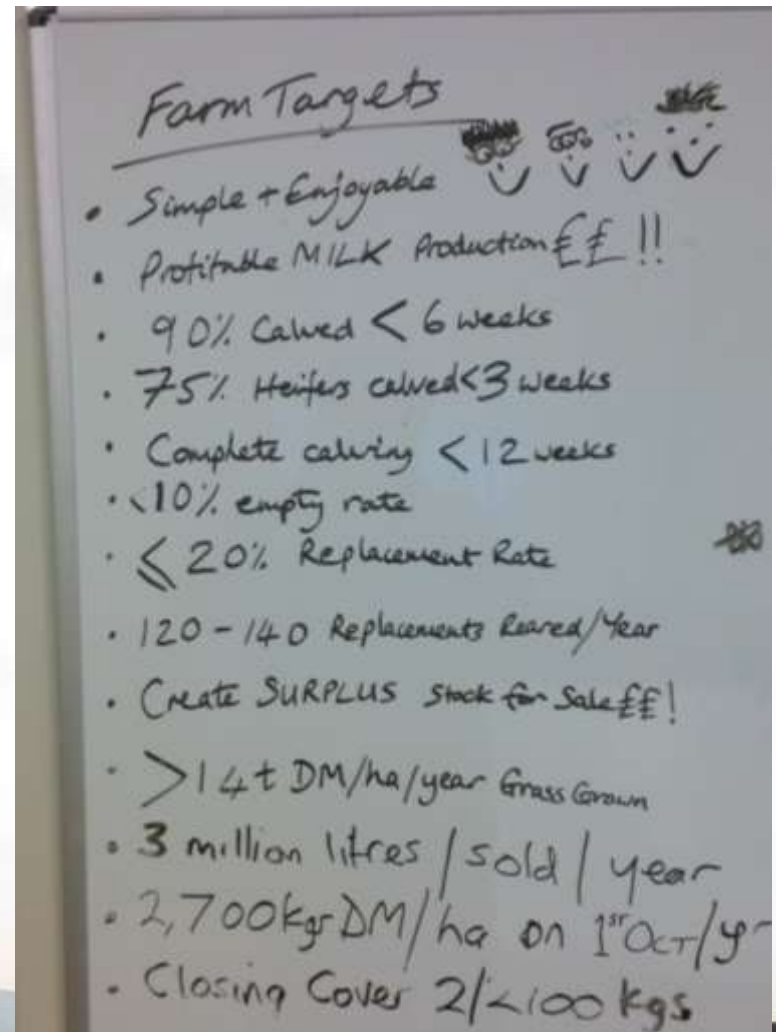 Farm Targets
• Simple + Enjoyable
• Profitable MILK Production ££ !!
• 90% Calved < 6 weeks
• 75% Heifers calved < 3 weeks
• Complete calving < 12 weeks
• <10% empty rate
• ≤ 20% Replacement Rate
• 120 - 140 Replacements Reared/Year
• Create SURPLUS Stock for Sale ££!
• >14t DM/ha/year Grass Grown
• 3 million litres / sold / year
• 2,700kgs DM/ha on 1st Oct/yr
• Closing Cover kgs